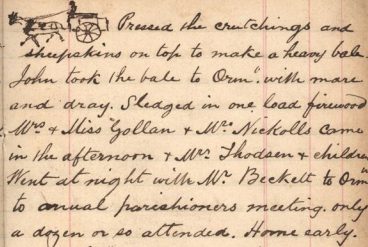 Pressed the crutchings and
sheepskins on top to make a heavy bale.
John took the bale to Orm.d with mare
and dray. Sledged in one load firewood
Mrs & Miss Gollan & Mrs Nickolls came
in the afternoon & Mrs Thodsen & children
Went at night with Mr Beckett to Orm.d
to annual parishioners meeting. only
a dozen or so attended. Home early.